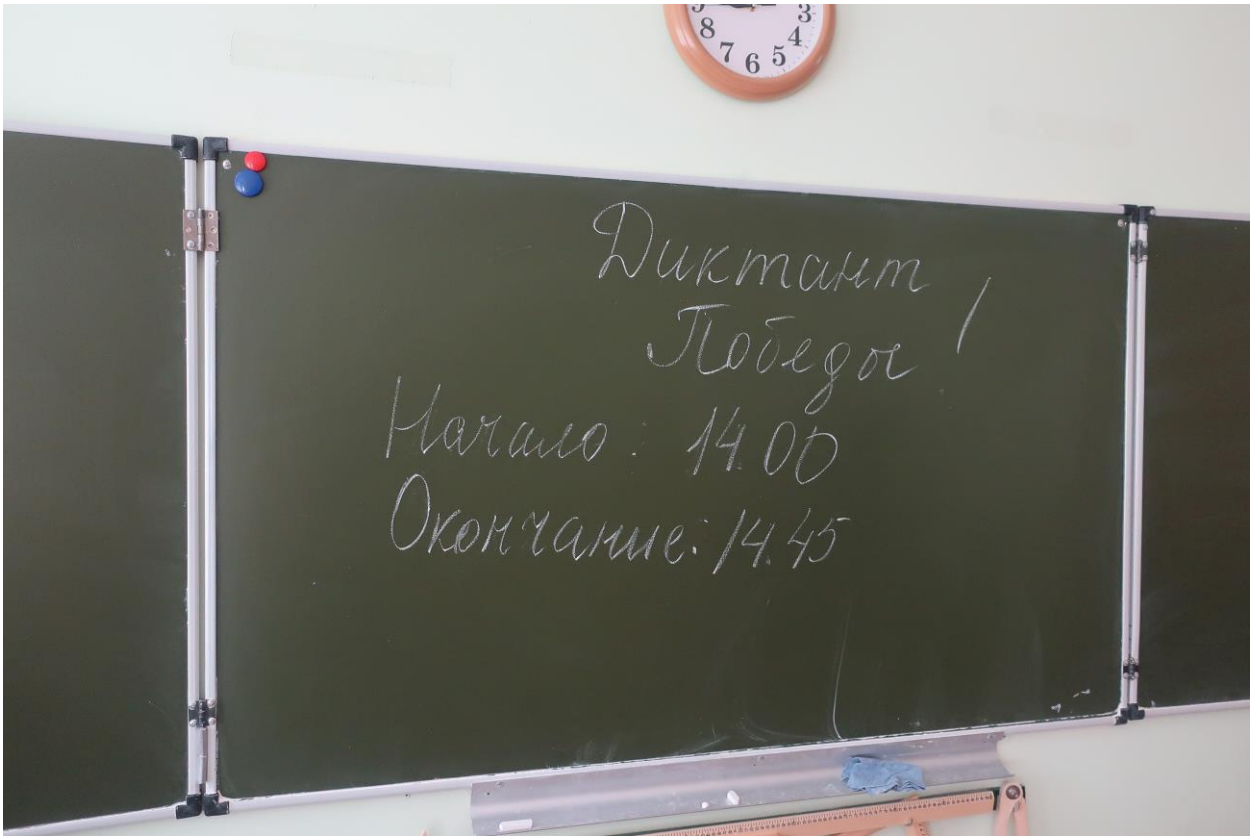 9 3
8 4
7 6 5
Диктант
Победы!
Начало: 14.00
Окончание: 14.45